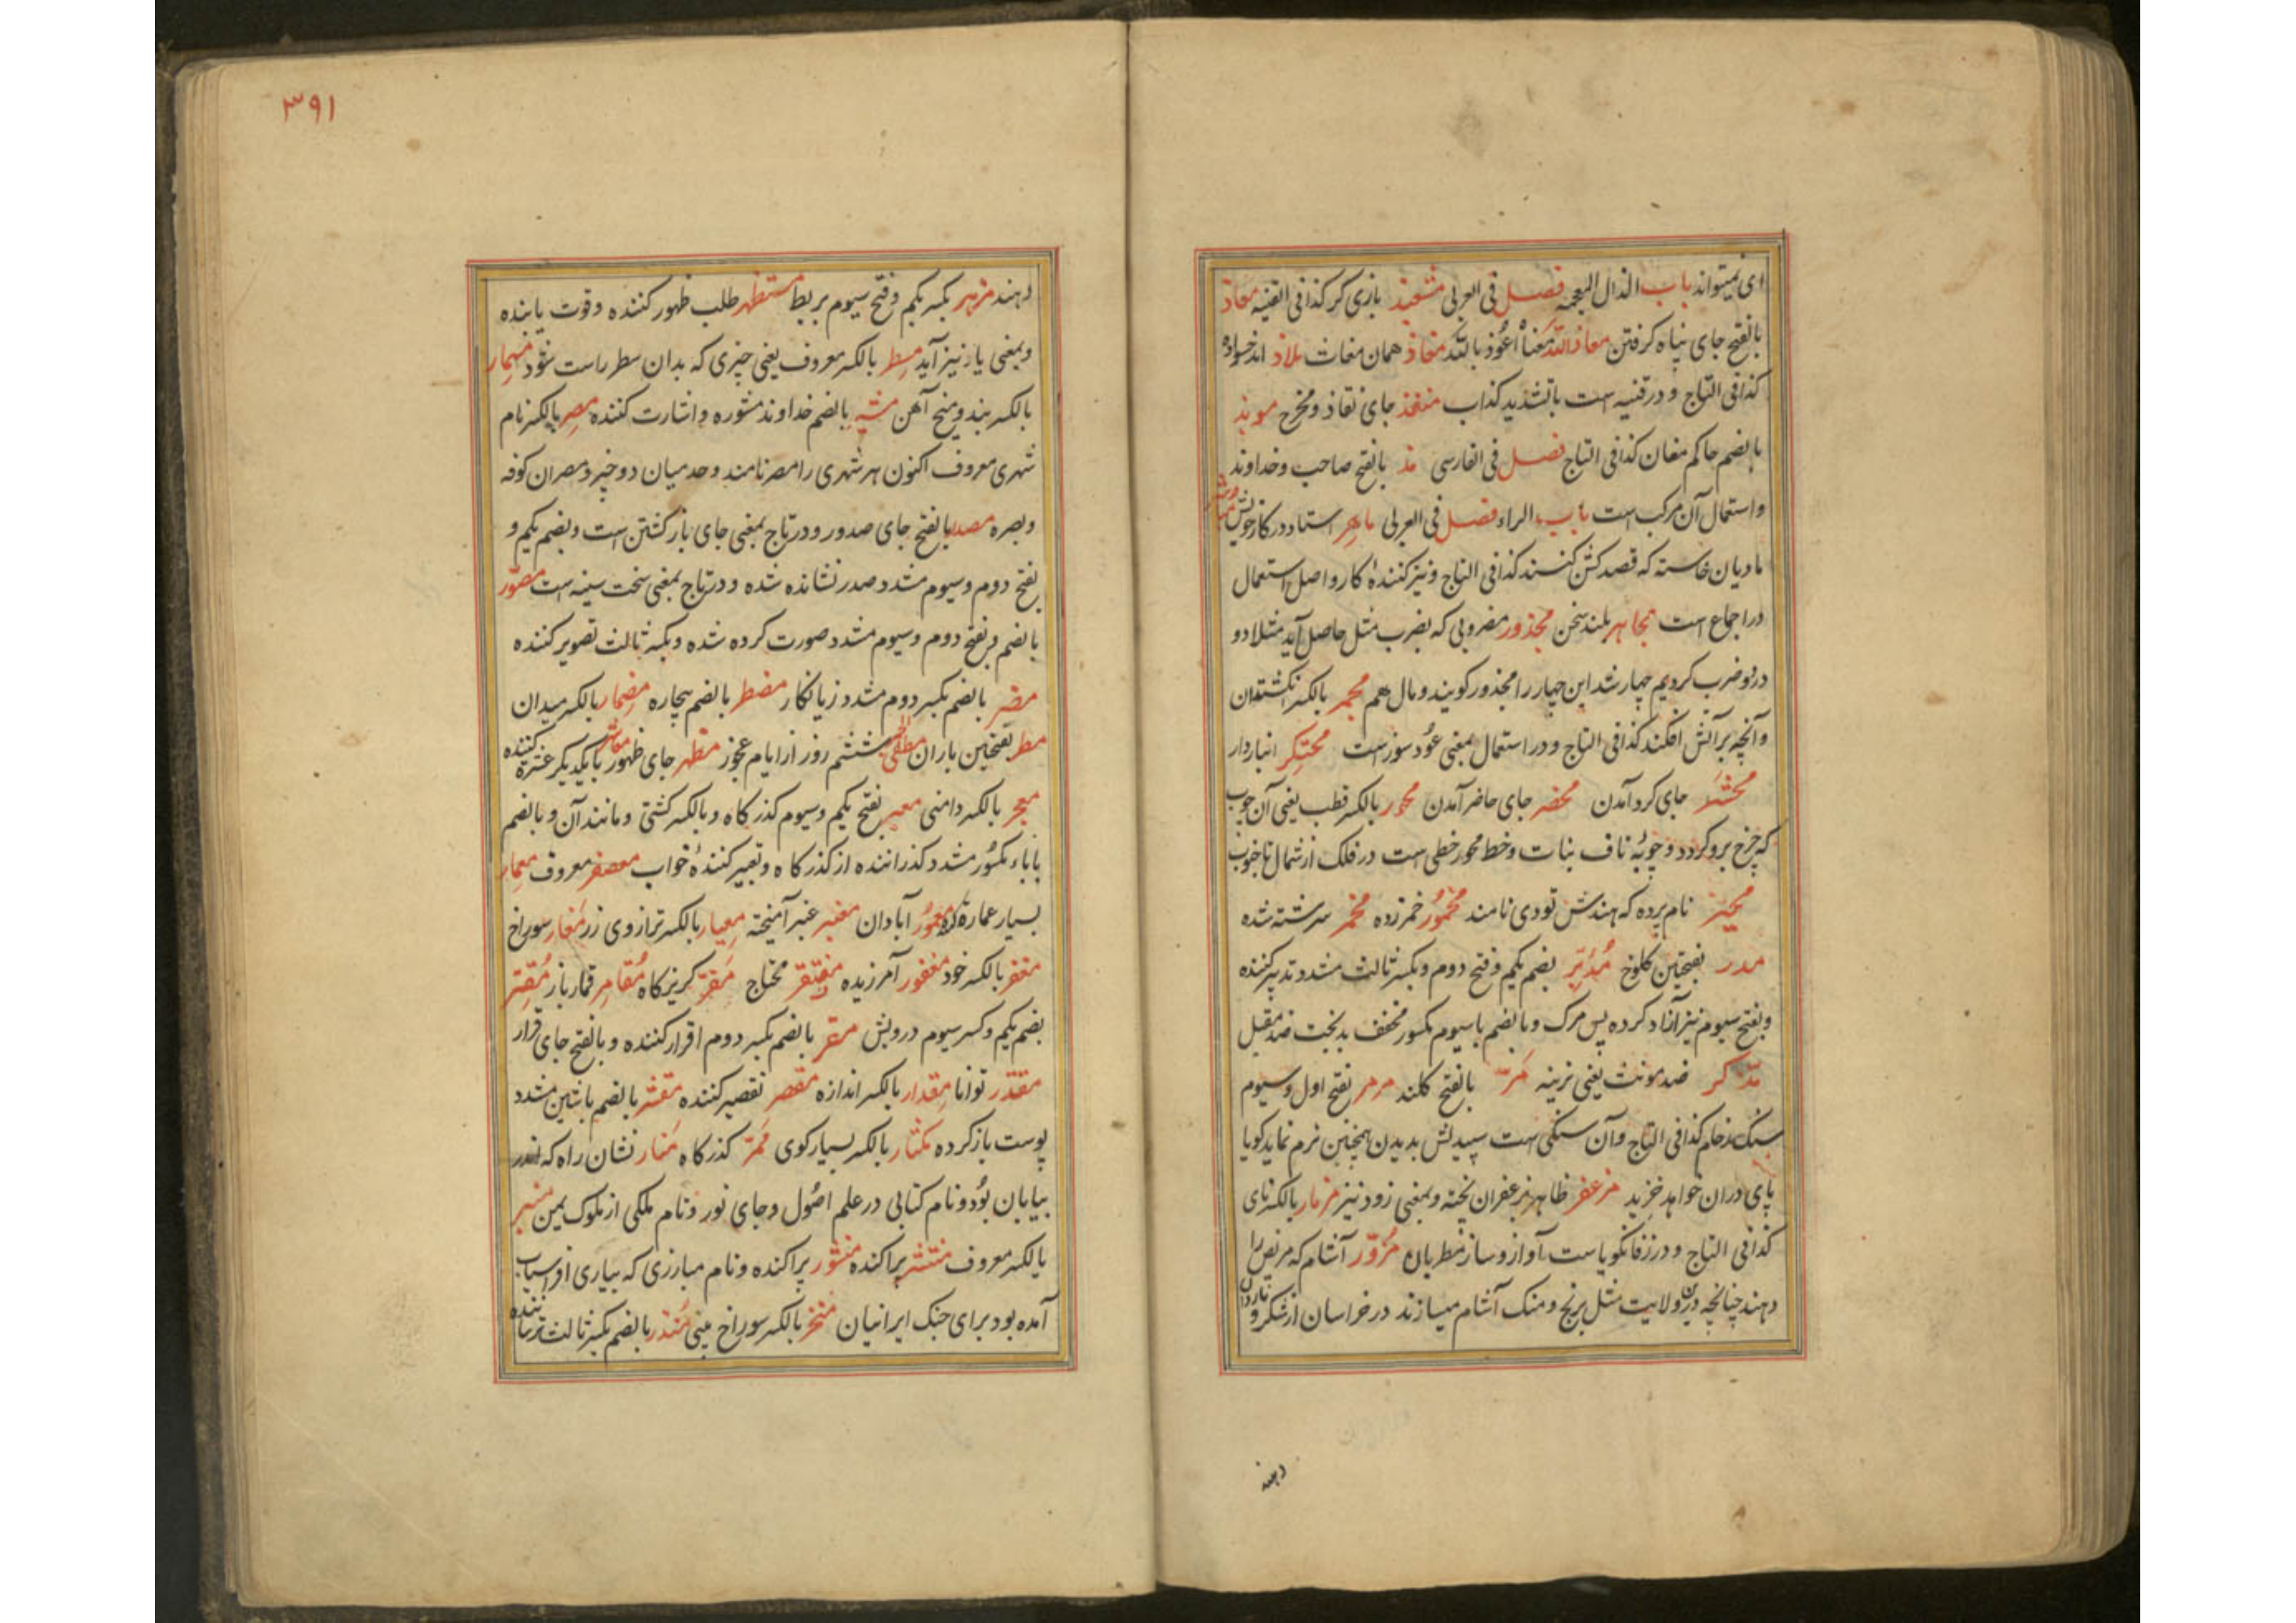 ای نمیتواند باب الذال المعجمه فصل فی العربی مشعبذ بازی کر کذا فی القنیه معاذ
بالفتح جای پناه کرفتن معاذالله مَعناُه اَعُوذ بالله مغاذ همان مغاث ملاذ اندخسواده
کذا فی التاج و در قنیه است باتشدید کذاب منفذ جای نفاذ و مخرج موبذ
بالضم حاکم مغان کذا فی التاج فصل فی الفارسی مذ بالفتح صاحب و خداوند
و استمال آن مرکب است باب الراء فصل فی العربی ماهر استاد در کار خویش
مادیان خاسته که قصد کشن کنند کذا فی التاج و نیز کنندهٔ کار و اصل استعمال
در اجماع است مجاهر بلند سخن مجذور مضروبی که بضرب مثل حاصل آید مثلا دو
در دو ضرب کردیم چهار شد این چهار را مجذور کویند و مال هم مجمر بالکسر انکشتدان
و آنچه بر آتش افکنند کذا فی التاج و در استعمال بمعنی عُود سوز است محتکر انباردار
محشر جای کرد آمدن محضر جای حاضر آمدن محور بالکسر قطب یعنی آن چوب
که چرخ برو کردد و چوبهٔ ناف بنات و خط محور خطی است در فلک از شمال تا جنوب
نام پرده که هندش تودی نامند مخمُور خمر زده مخمر سرشته شده
مدر بفتحتین کلوخ مُدَبّر بضم یکم و فتح دوم و بکسر ثالث مشدد تدبیر کننده
و بفتح سیوم نیز آزاد کرده پس مرک و بالضم با سیوم مکسور مخفف بدبخت ضد مقبل
مذکر ضد مونث یعنی نرینه مَرّ بالفتح کلند مرمر بفتح اول و سیوم
سنک رخام کذا فی التاج و آن سنکی است سپیدش بدیدن همچنین نرم نماید کویا
پای دران خواهد خزید مزعفر ظاهر بزعفران پخته و بمعنی زود نیز مزمار بالکسر نای
کذا فی التاج و در زفانکویاست آواز و ساز مطربان مُزوّر آشام که مریض را
دهند چنانچه درین ولایت مثل برنج و منک آشام میسازند در خراسان از شکر و ناردان
دهند
۳۹۱
دهند مزهر بکسر یکم و فتح سیوم بربط مستظهر طلب ظهور کننده و قوت یابنده
و بمعنی یار نیز آید مسطر بالکسر معروف یعنی چیزی که بدان سطر راست شود مسمار
بالکسر بند و میخ آهن مشیر بالضم خداوند مشوره و اشارت کننده مِصر بالکسر نام
شهری معروف اکنون هر شهری را مصر نامند و حد میان دو چیز و مصران کوفه
و بصره مصدر بالفتح جای صدور و در تاج بمعنی جای باز کشتن است و بضم یکم و
بفتح دوم و سیوم مشدد صدر نشانده شده و در تاج بمعنی سخت سینه است مصوّر
بالضم و بفتح دوم و سیوم مشدد صورت کرده شده و بکسر ثالث تصویر کننده
مضر بالضم بکسر دوم مشدد زیانکار مضطر بالضم بیچاره مِضمار بالکسر میدان
مطر بفتحتین باران مطفی الجمر ششم روز از ایام عجوز مظهر جای ظهور معاشر بایکدیکر عشرت کننده
معجر بالکسر دامنی معبر بفتح یکم و سیوم کذرکاه و بالکسر کشتی و مانند آن و بالضم
باباء مکسُور مشدد کذراننده از کذرکاه و تعبیر کنندهٔ خواب معصفر معروف مِعمار
بسیار عماره کننده معمُور آبادان معنبر عنبر آمیخته مِعیار بالکسر ترازوی زر مَغار سوراخ
مغفر بالکسر خود مغفور آمرزیده مفتقر محتاج مَفرّ کریزکاه مُقامِر قمارباز مُقتر
بضم یکم و کسر سیوم درویش مقر بالضم بکسر دوم اقرار کننده و بالفتح جای قرار
مقتدر توانا مِقدار بالکسر اندازه مقصر تقصیر کننده مقشر بالضم باشین مشدد
پوست باز کرده مکثار بالکسر بسیار کوی مَمَرّ کذرکاه مَنار نشان راه که اندر
بیابان بُوَد و نام کتابی در علم اصُول و جای نور و نام ملکی از ملوک یمن منبر
بالکسر معروف منتشر پراکنده منشور پراکنده و نام مبارزی که بیاری افراسیاب
آمده بود برای جنک ایرانیان منخر بالکسر سوراخ بینی مُنذر بالضم بکسر ثالث ترساننده